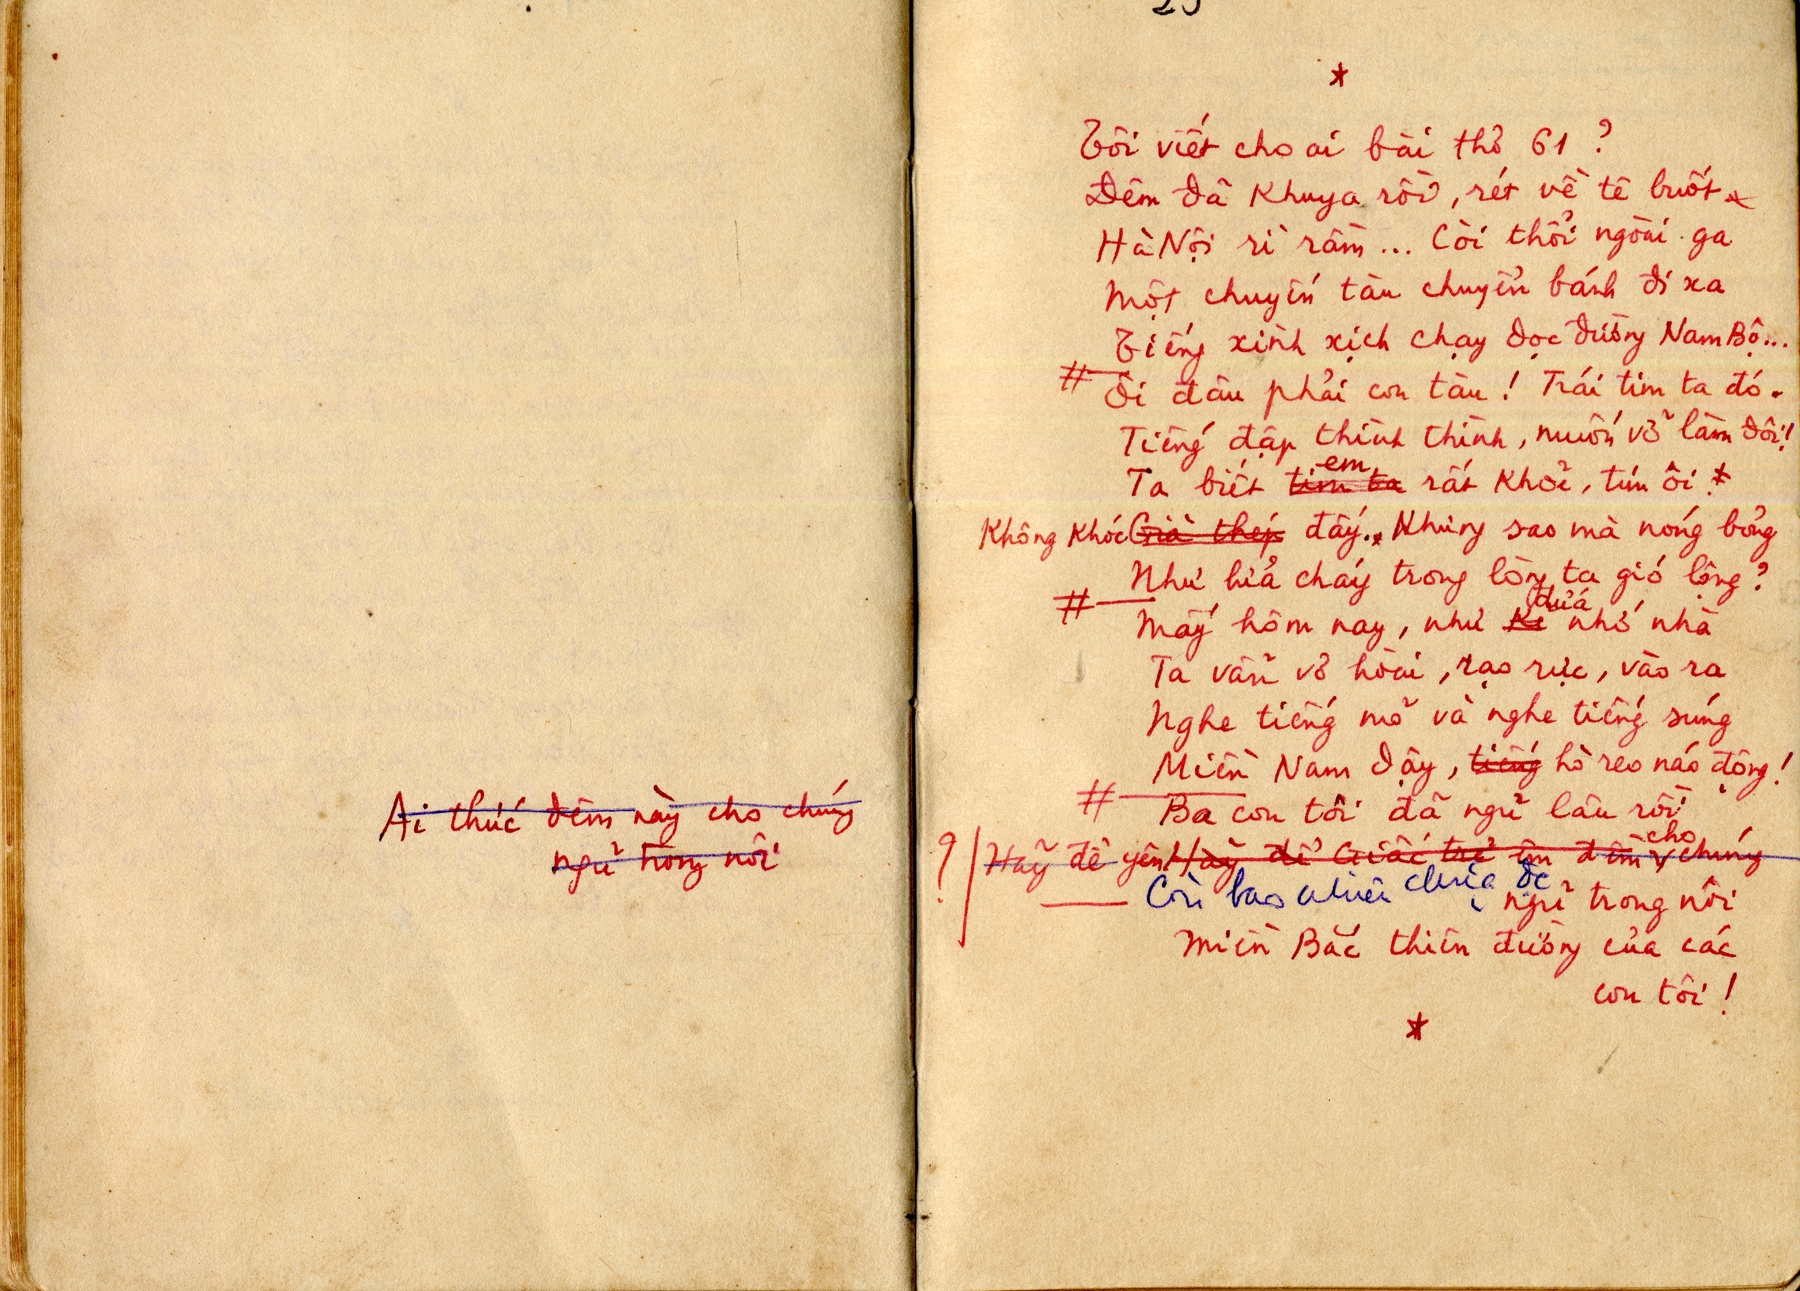 Ai thức đêm này cho chúng
ngủ trong nôi
*
Tôi viết cho ai bài thơ 61 ?
Đêm đã khuya rồi, rét về tê buốt
Hà Nội rì rầm... Còi thổi ngoài ga
Một chuyến tàu chuyển bánh đi xa
Tiếng xình xịch chạy dọc đường Nam Bộ...
#
Ôi đâu phải con tàu ! Trái tim ta đó.
Tiếng đập thình thình, muốn vỡ làm đôi!
em
Ta biết tim ta rất khoẻ, tim ôi !
Không khóc Già thép đấy.. Nhưng sao mà nóng bỏng
Như lửa cháy trong lòng ta gió lộng ?
#
đứa
Mấy hôm nay, như kẻ nhớ nhà
Ta vẩn vơ hoài, rạo rực, vào ra
Nghe tiếng mõ và nghe tiếng súng
Miền Nam dậy, tiếng hò reo náo động !
#
Ba con tôi đã ngủ lâu rồi
cho
? Hãy để yên Hãy để giấc trẻ êm đêm chúng
Còn bao nhiêu chưa đc ngủ trong nôi
Miền Bắc thiên đường của các
con tôi !
*